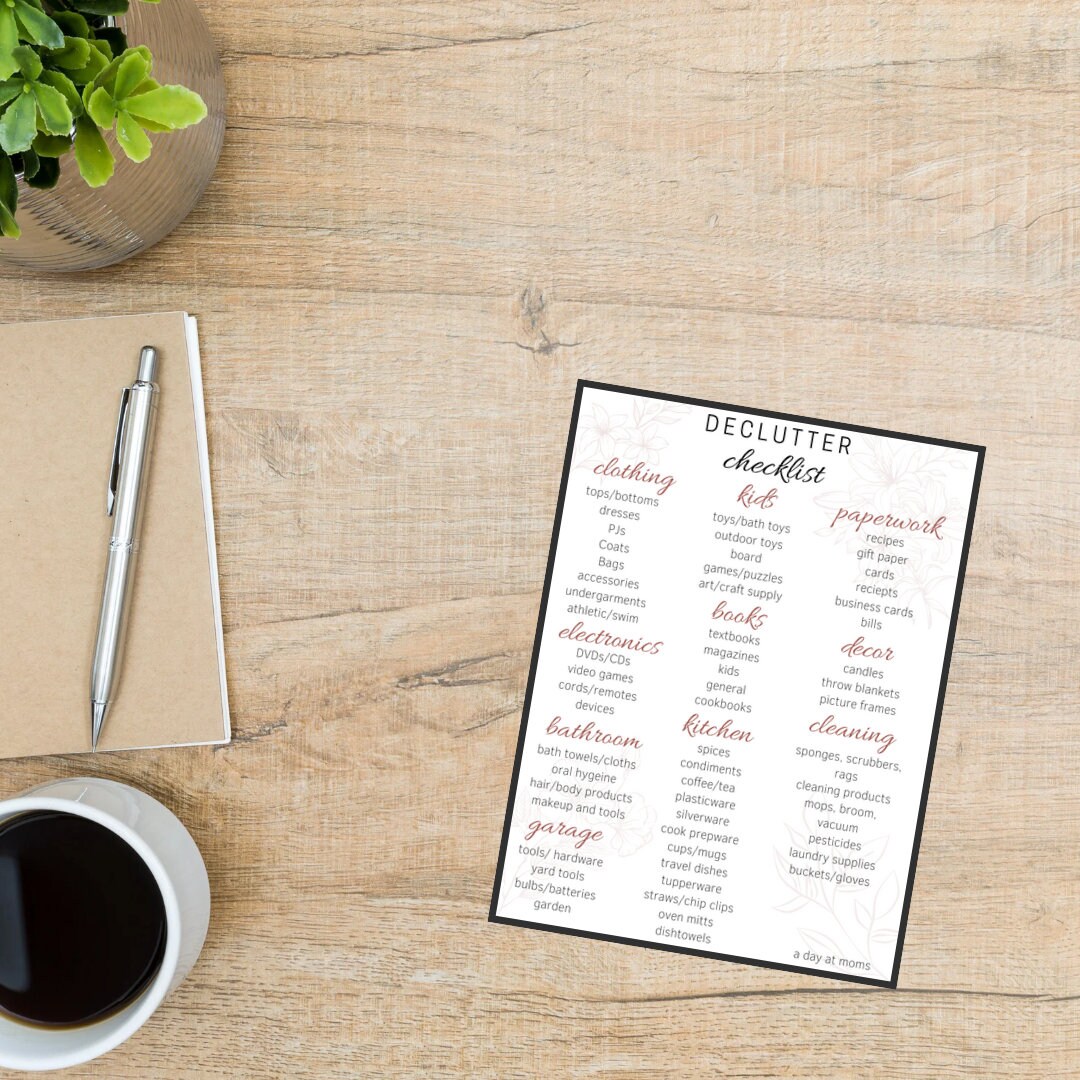 DECLUTTER
checklist
clothing
tops/bottoms
dresses
PJs
Coats
Bags
accessories
undergarments
athletic/swim
electronics
DVDs/CDs
video games
cords/remotes
devices
bathroom
bath towels/cloths
oral hygeine
hair/body products
makeup and tools
garage
tools/ hardware
yard tools
bulbs/batteries
garden
kids
toys/bath toys
outdoor toys
board
games/puzzles
art/craft supply
books
textbooks
magazines
kids
general
cookbooks
kitchen
spices
condiments
coffee/tea
plasticware
silverware
cook prepware
cups/mugs
travel dishes
tupperware
straws/chip clips
oven mitts
dishtowels
paperwork
recipes
gift paper
cards
reciepts
business cards
bills
decor
candles
throw blankets
picture frames
cleaning
sponges, scrubbers,
rags
cleaning products
mops, broom,
vacuum
pesticides
laundry supplies
buckets/gloves
a day at moms